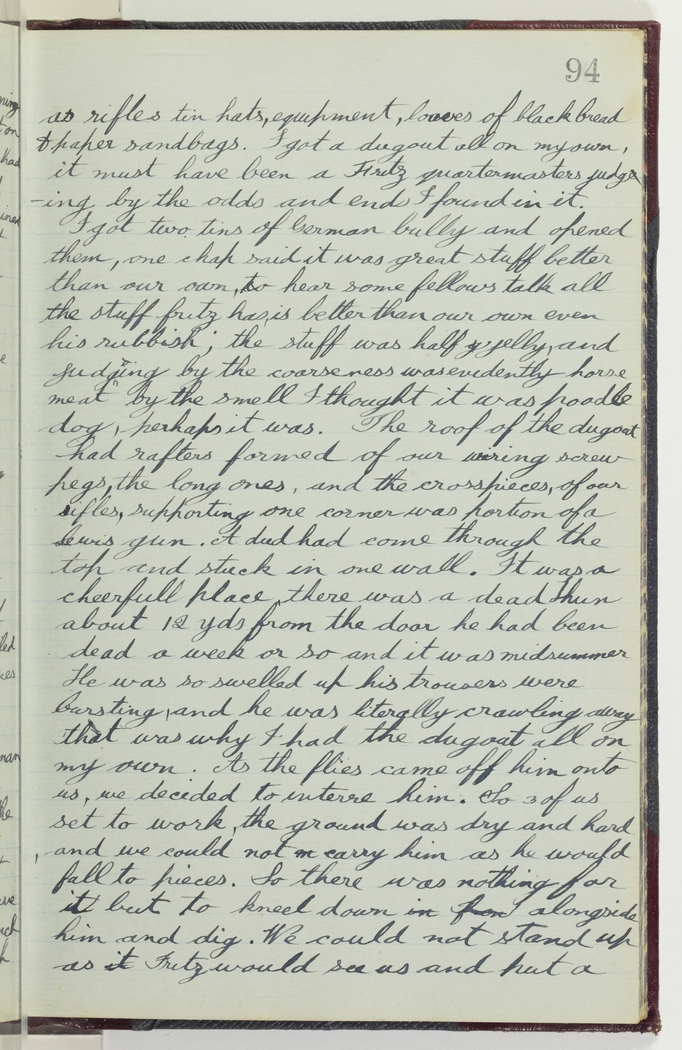 94
as rifles tin hats, equipment, loaves of black bread
& paper sandbags. I got a dugout all on my own,
it must have been a Fritz quartermasters judg
-ing by the odds and ends I found in it.
I got two tins of German bully and opened
them, one chap said it was great stuff better
than our own, to hear some fellows talk all
the stuff fritz has is better than our own even
his rubbish; the stuff was half jelly, and
judging by the coarseness was evidently horse
meat" by the smell I thought it was poodle
dog, perhaps it was. The roof of the dugout
had rafters formed of our wiring screw
pegs, the long ones, and the crosspieces, of our
rifles, supporting one corner was portion of a
Lewis gun. A dud had come through the
top and stuck in one wall. It was a
cheerfull place, there was a dead Hun
about 12 yds from the door he had been
dead a week or so and it was midsummer
He was so swelled up his trousers were
bursting, and he was literally crawling away
that was why I had the dugout all on
my own. As the flies came off him onto
us, we decided to interre him. So 3 of us
set to work, the ground was dry and hard
, and we could not carry him as he would
fall to pieces. So there was nothing for
it but to kneel down in fron alongside
him and dig. We could not stand up
as it Fritz would see us and put a